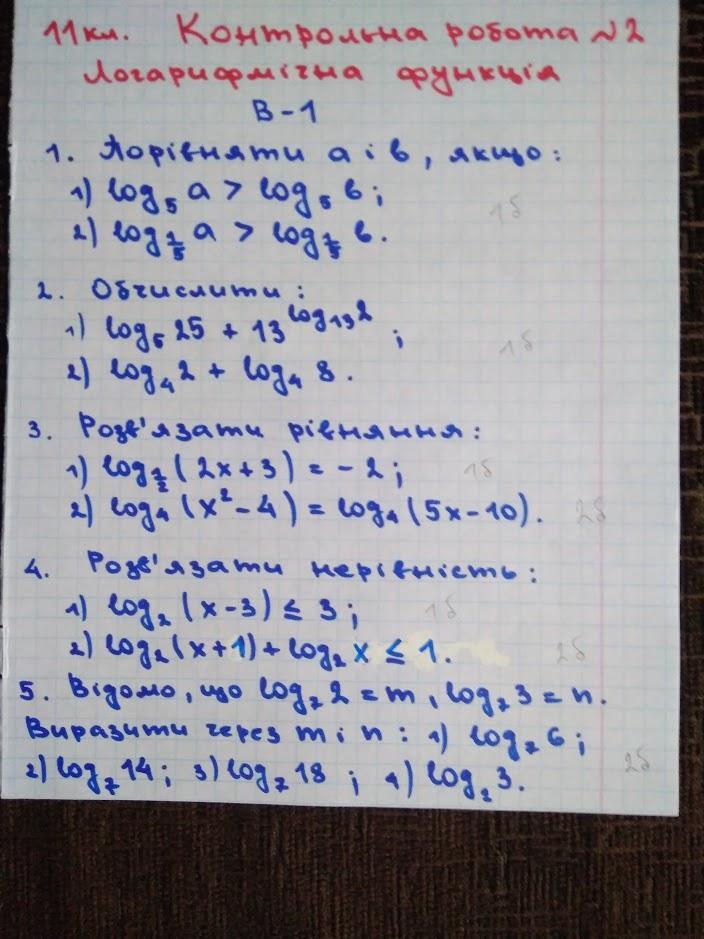 11 кл. Контрольна робота №2
Логарифмічна функція
В-1
1. Порівняти a i b, якщо:
1) log₅ a > log₅ b; 1б
2) log_{1/5} a > log_{1/5} b.
2. Обчислити:
1) log₅ 25 + 13^{log₁₃ 2}; 1б
2) log₄ 2 + log₄ 8.
3. Розв'язати рівняння:
1) log_{1/2} (2x+3) = -2; 1б
2) log₄ (x² - 4) = log₄ (5x-10). 2б
4. Розв'язати нерівність:
1) log₂ (x-3) ≤ 3; 1б
2) log₂ (x+1) + log₂ x ≤ 1. 2б
5. Відомо, що log₇ 2 = m, log₇ 3 = n.
Виразити через m i n: 1) log₇ 6;
2) log₇ 14; 3) log₇ 18; 4) log₂ 3. 2б